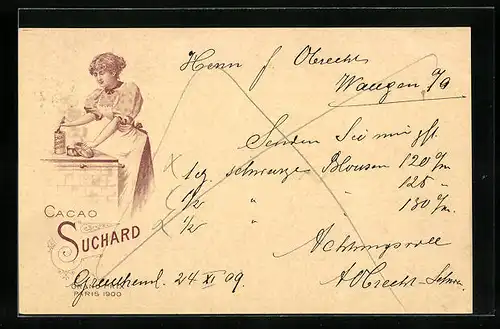 Herrn J. Obrecht
Wangen a/A
Senden Sie mir gfl.
1 Dz. schwarze Blousen 120 c/m
1/2 " " 125 "
1/2 " " 130 c/m.
Achtungsvoll
A. Obrecht-
24 XI 09.
CACAO
SUCHARD
GRAND PRIX
PARIS 1900